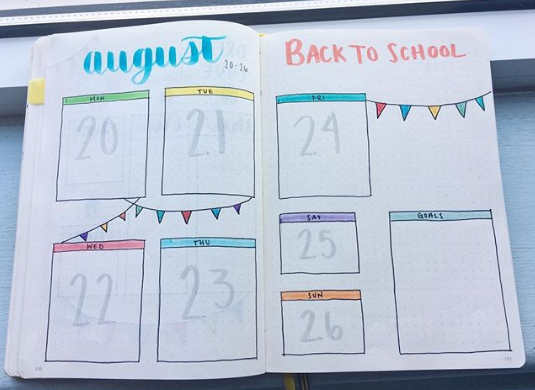 august
20-26
BACK TO SCHOOL
MON
20
TUE
21
WED
22
THU
23
FRI
24
SAT
25
SUN
26
GOALS